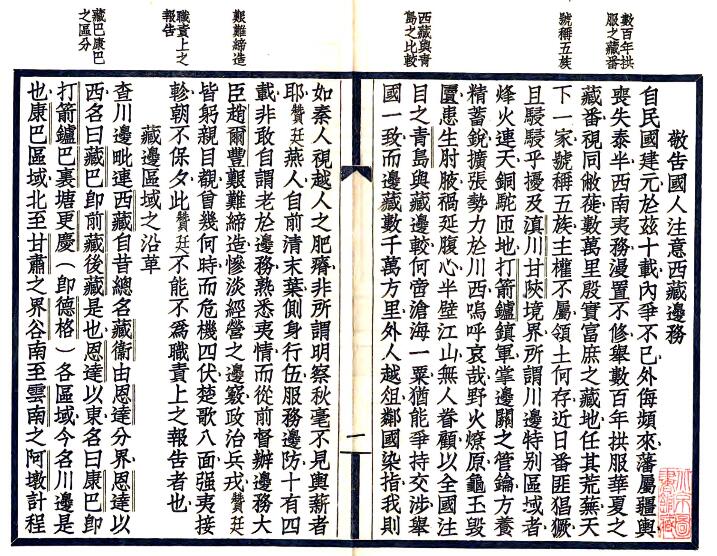 數百年拱
服之藏番
號稱五族
西藏與青
島之比較
敬告國人注意西藏邊務
自民國建元於茲十載內爭不已外侮頻來藩屬疆輿
喪失泰半西南夷務漫置不修舉數百年拱服華夏之
藏番視同敝蓰數萬里殷實富庶之藏地任其荒蕪天
下一家號稱五族主權不屬領土何存近日番匪猖獗
且駸駸乎擾及滇川甘陝境界所謂川邊特別區域者
烽火連天銅駝匝地打箭鑪鎮軍掌邊關之管鑰方養
精蓄銳擴張勢力於川西嗚呼哀哉野火燎原龜玉毀
匵患生肘腋禍延腹心半壁江山無人眷顧以全國注
目之青島與藏邊較何啻滄海一粟猶能爭持交涉舉
國一致而邊藏數千萬方里外人越俎鄰國染指我則
一
艱難締造
職責上之
報告
藏巴康巴
之區分
如秦人視越人之肥瘠非所謂明察秋毫不見輿薪者
耶贊廷燕人自前清末葉側身行伍服務邊防十有四
載非敢自謂老於邊務熟悉夷情而從前督辦邊務大
臣趙爾豐艱難締造慘淡經營之邊竅政治兵戎贊廷
皆躬親目覩曾幾何時而危機四伏楚歌八面强夷接
軫朝不保夕此贊廷不能不爲職責上之報告者也
藏邊區域之沿革
查川邊毗連西藏自昔總名藏衞由恩達分界恩達以
西名曰藏巴卽前藏後藏是也恩達以東名曰康巴卽
打箭鑪巴裏塘更慶（卽德格）各區域今名川邊是
也康巴區域北至甘肅之界谷南至雲南之阿墩計程